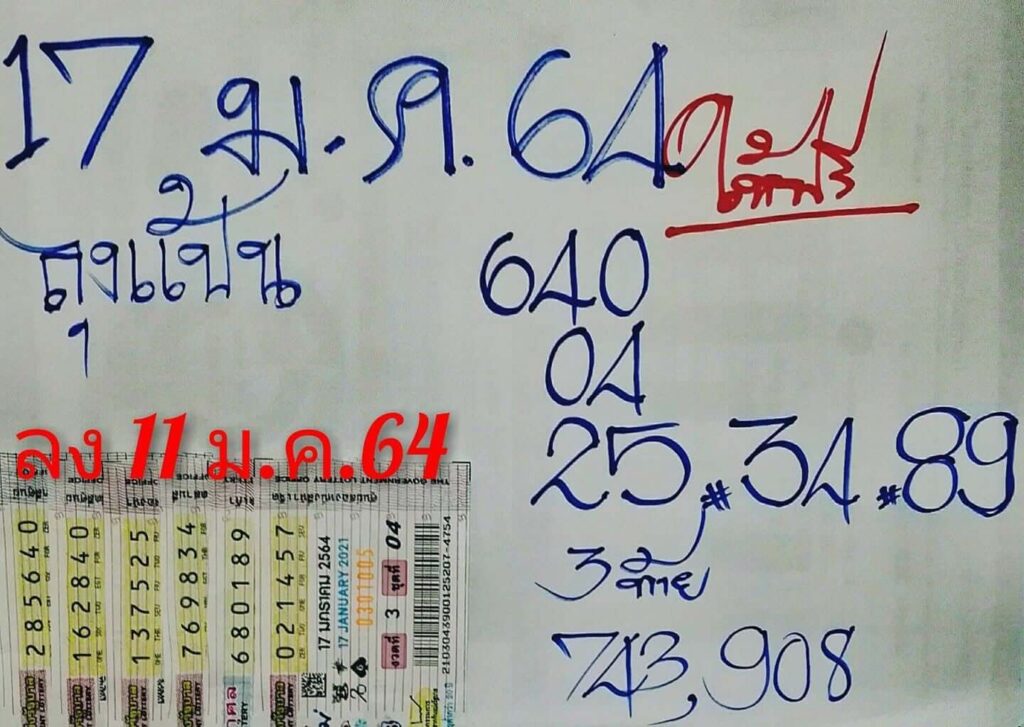 17 ม.ค. 64
ถุงแป้น
640
04
25,34.89
#
#
3 ท้าย
743,908
ลง 11 ม.ค.64
THE GOVERNMENT LOTTERY OFFICE
285640
162840
137525
769834
680189
021457
17 มกราคม 2564
17 JANUARY 2021
0301005
งวดที่ 3 ชุดที่ 04
2103043900125207-4754